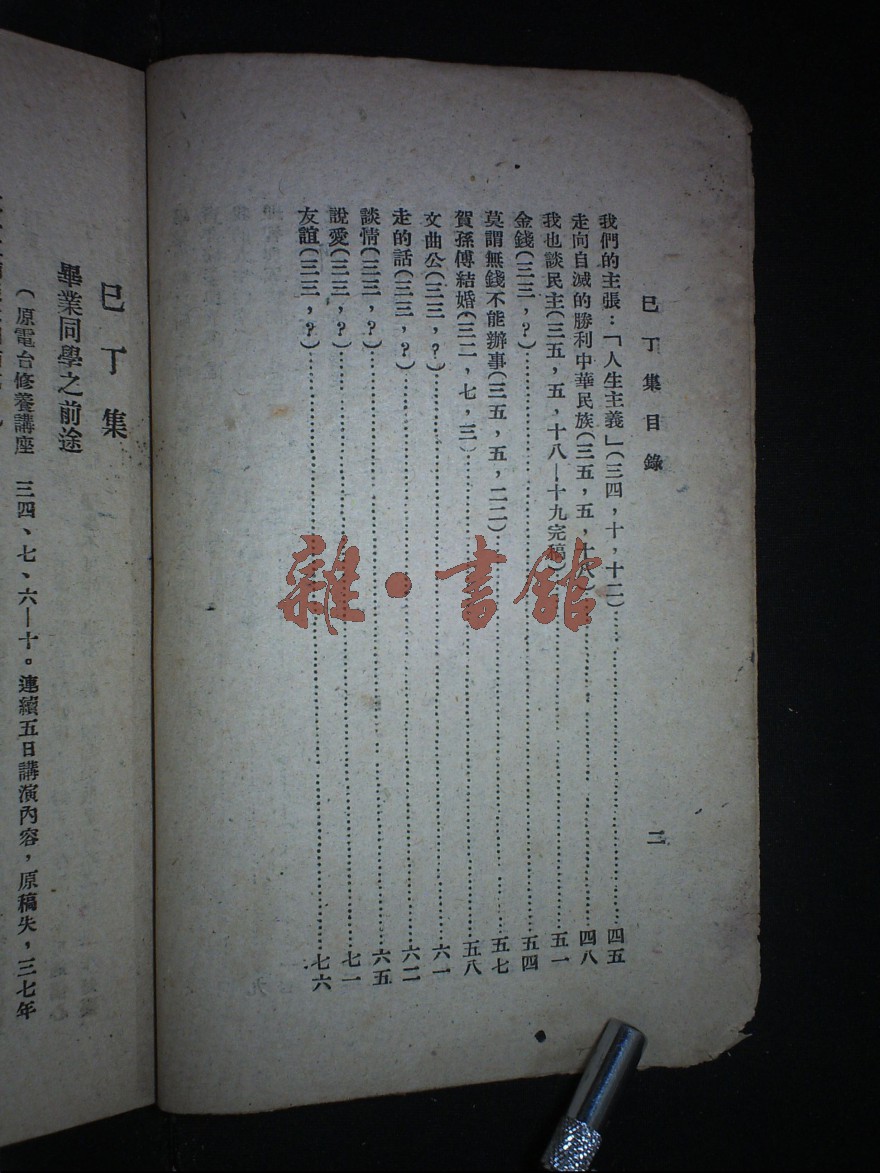 巳丁集目錄
二
我們的主張：「人生主義」(三四，十，十二)……四五
走向自滅的勝利中華民族(三五，五，十八)……四八
我也談民主(三五，五，十八—十九完稿)……五一
金錢(三三，?)……五四
莫謂無錢不能辦事(三五，五，二二)……五七
賀孫傅結婚(三二，七，三)……五八
文曲公(三三，?)……六一
走的話(三三，?)……六二
談情(三三，?)……六五
說愛(三三，?)……七一
友誼(三三，?)……七六
雜·書館
巳丁集
畢業同學之前途
(原電台修養講座 三四、七、六—十。連續五日講演內容，原稿失，三七年